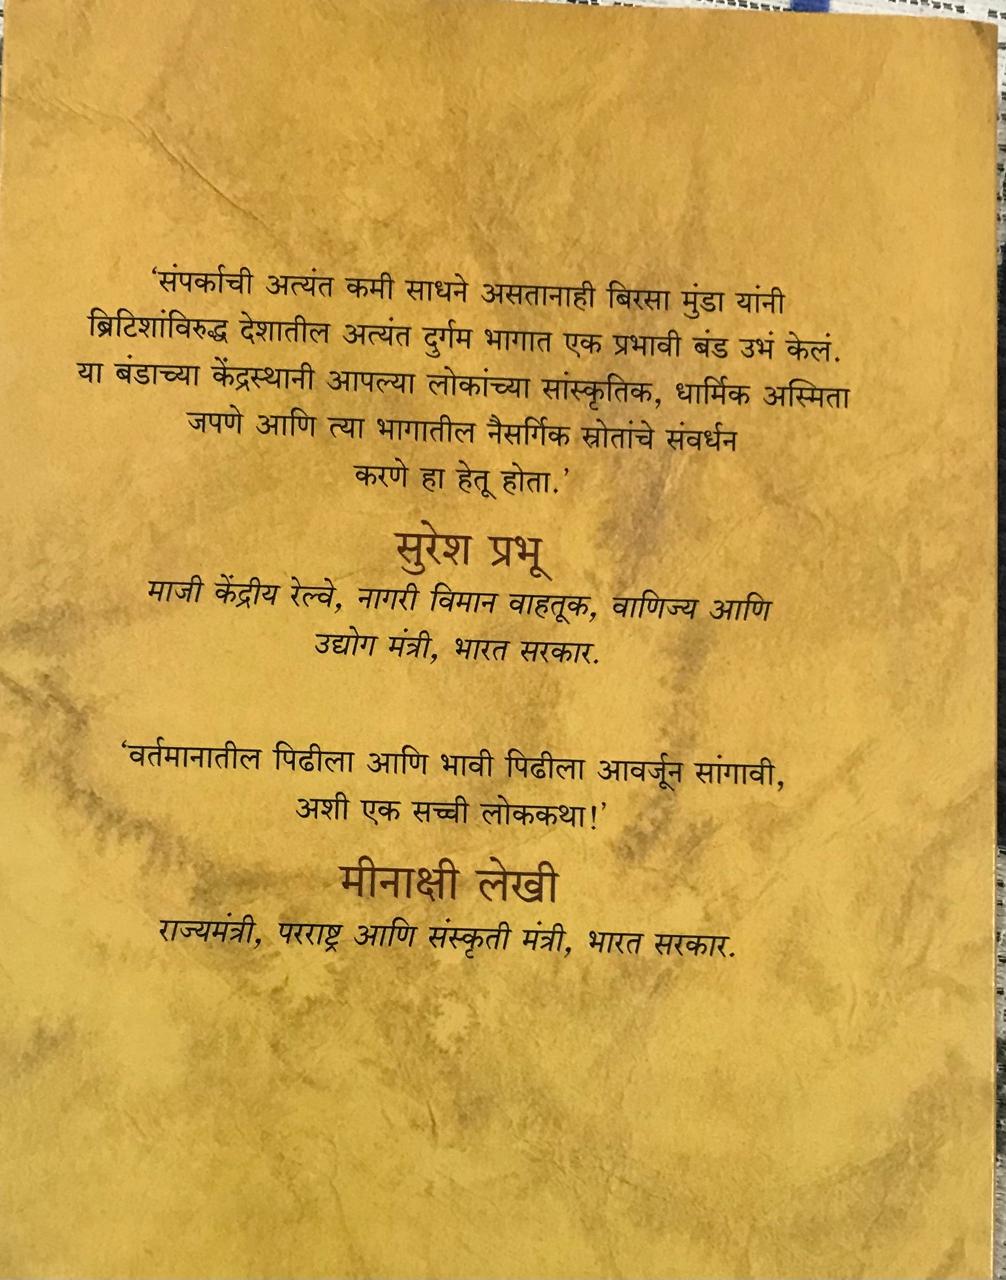 ‘संपर्काची अत्यंत कमी साधने असतानाही बिरसा मुंडा यांनी
ब्रिटिशांविरुद्ध देशातील अत्यंत दुर्गम भागात एक प्रभावी बंड उभं केलं.
या बंडाच्या केंद्रस्थानी आपल्या लोकांच्या सांस्कृतिक, धार्मिक अस्मिता
जपणे आणि त्या भागातील नैसर्गिक स्रोतांचे संवर्धन
करणे हा हेतू होता.’
सुरेश प्रभू
माजी केंद्रीय रेल्वे, नागरी विमान वाहतूक, वाणिज्य आणि
उद्योग मंत्री, भारत सरकार.
‘वर्तमानातील पिढीला आणि भावी पिढीला आवर्जून सांगावी,
अशी एक सच्ची लोककथा!’
मीनाक्षी लेखी
राज्यमंत्री, परराष्ट्र आणि संस्कृती मंत्री, भारत सरकार.